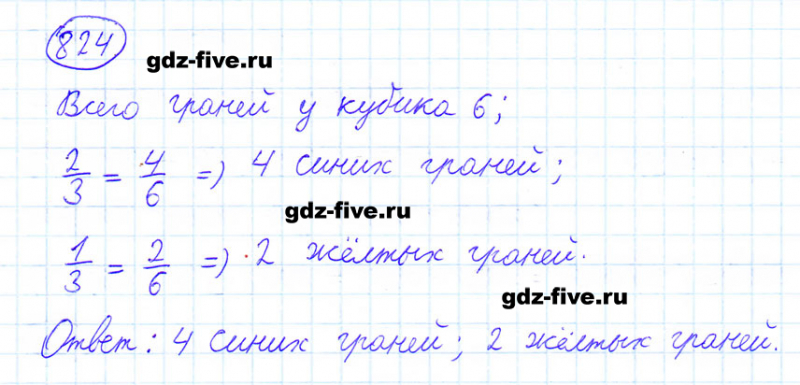 824
gdz-five.ru
Всего граней у кубика 6;
2/3 = 4/6 => 4 синих граней;
gdz-five.ru
1/3 = 2/6 => 2 жёлтых граней.
gdz-five.ru
Ответ: 4 синих граней; 2 жёлтых граней.